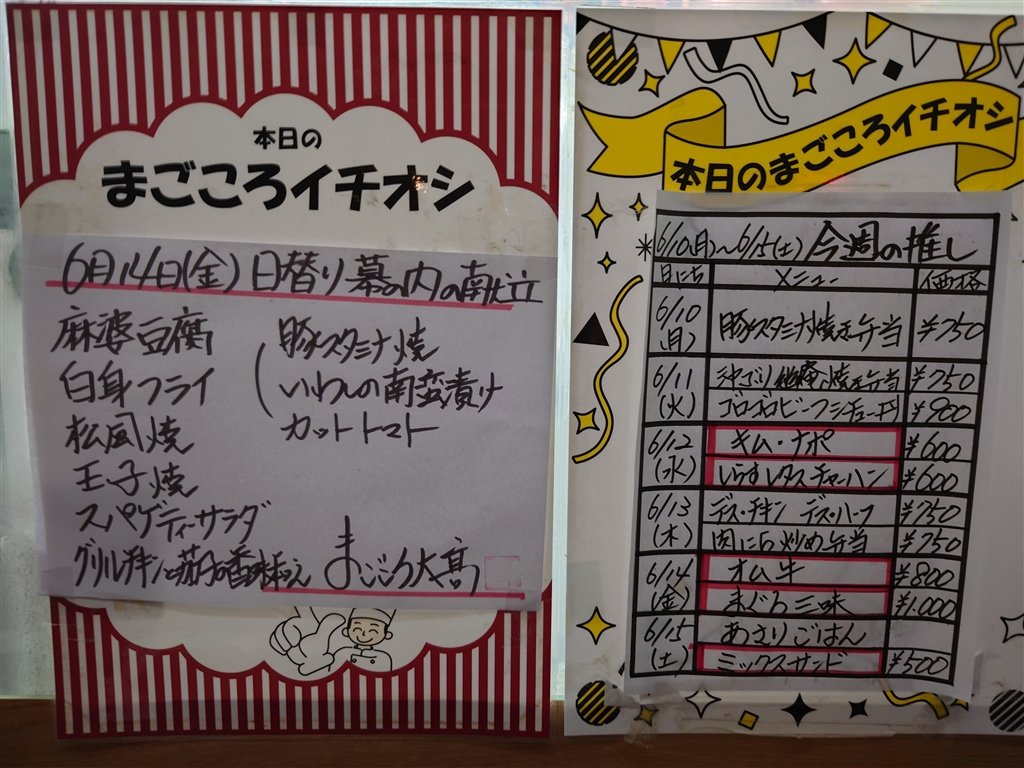 本日の
まごころイチオシ
6月14日(金)日替り幕の内の献立
麻婆豆腐
白身フライ
松風焼
玉子焼
スパゲティーサラダ
グリルチキンと茄子の香味和え
豚スタミナ焼
いわしの南蛮漬け
カットトマト
まごころ大高
本日のまごころイチオシ
*6/10(月)～6/15(土) 今週の推し
日にち メニュー 価格
6/10(月) 豚スタミナ焼き弁当 ¥750
6/11(火) 焼き弁当 ¥750
ゴロゴロビーフシチュー丼 ¥900
6/12(水) キム・ナポ ¥600
しらすレタスチャーハン ¥600
6/13(木) デス・チキン デス・ハーフ ¥750
肉にら炒め弁当 ¥750
6/14(金) オム牛 ¥800
まぐろ三味 ¥1.000
6/15(土) あさりごはん
ミックスサンド ¥500